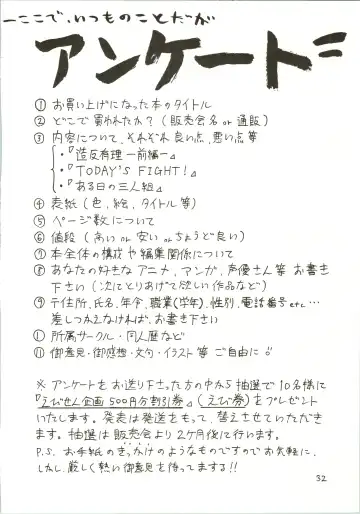 —ここで、いつものことだが
アンケート=
① お買い上げになった本のタイトル
② どこで買われたか?(販売会名 or 通販)
③ 内容について、それぞれ良い点、悪い点等
・『造反有理 —前編—』
・『TODAY'S FIGHT!』
・『ある日の三人組』
④ 表紙(色、絵、タイトル等)
⑤ ページ数について
⑥ 値段(高い or 安い or ちょうど良い)
⑦ 本全体の構成や編集関係について
⑧ あなたの好きなアニメ、マンガ、声優さん等 お書き
下さい(次にとりあげて欲しい作品など)
⑨ 〒住所、氏名、年令、職業(学年)、性別、電話番号etc…
差しつかえなければ、お書き下さい
⑩ 所属サークル・同人歴など
⑪ 御意見・御感想・文句・イラスト等 ご自由に
※ アンケートをお送り下さった方の中から抽選で10名様に
『えびせん企画500円分割引券』(えび券)をプレゼント
いたします。発表は発送をもって、替えさせていただき
ます。抽選は販売会より2ケ月後に行います。
P.S. お手紙のきっかけのようなものですのでお気軽に、
しかし厳しく熱い御意見を待ってまする!!
32